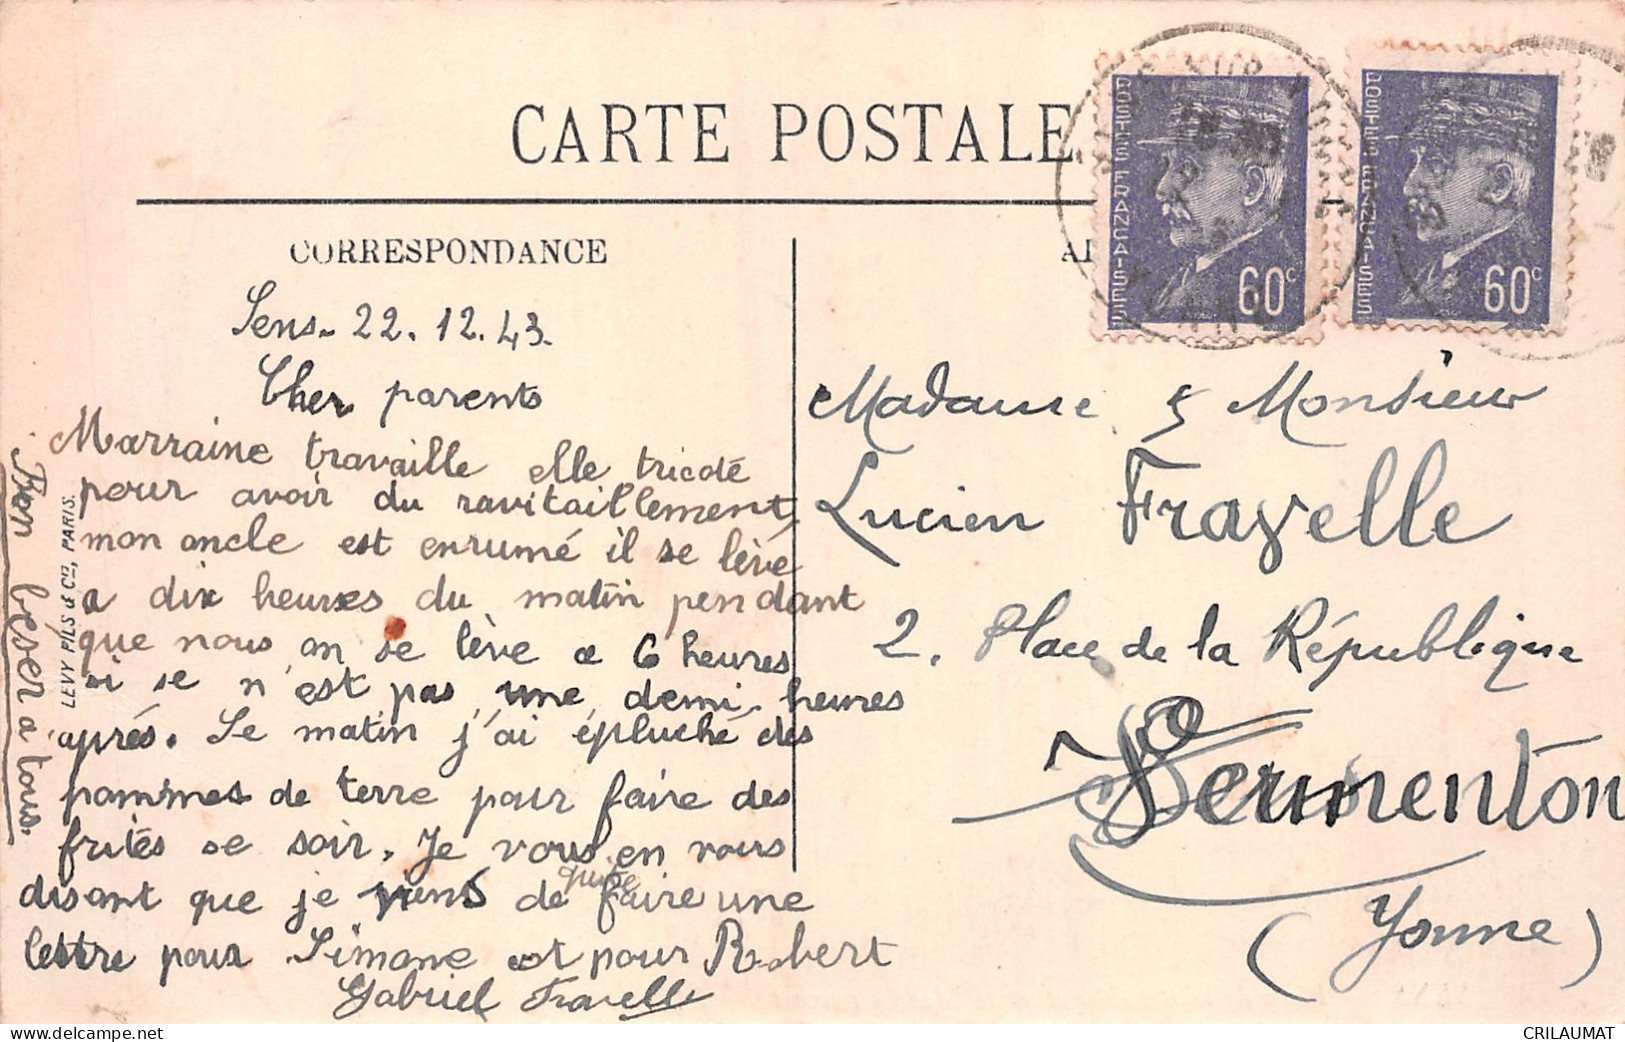 CARTE POSTALE
CORRESPONDANCE
Sens - 22.12.43.
Cher parents
Marraine travaille elle tricoté
pour avoir du ravitaillement,
mon oncle est enrumé il se lève
a dix heures du matin pendant
que nous on se lève a 6 heures
si se n'est pas une demi-heures
après. Se matin j'ai épluché des
pommes de terre pour faire des
frités se soir. Je vous en
disant que je viens de faire une
lettre pour Simone est pour Robert
Gabriel Fravelle
Bon béser a tous.
LEVY FILS & Cie, PARIS.
POSTES FRANÇAISES
60c
POSTES FRANÇAISES
60c
Madame & Monsieur
Lucien Fravelle
2, Place de la République
Vermenton
(Yonne)
CRILAUMAT